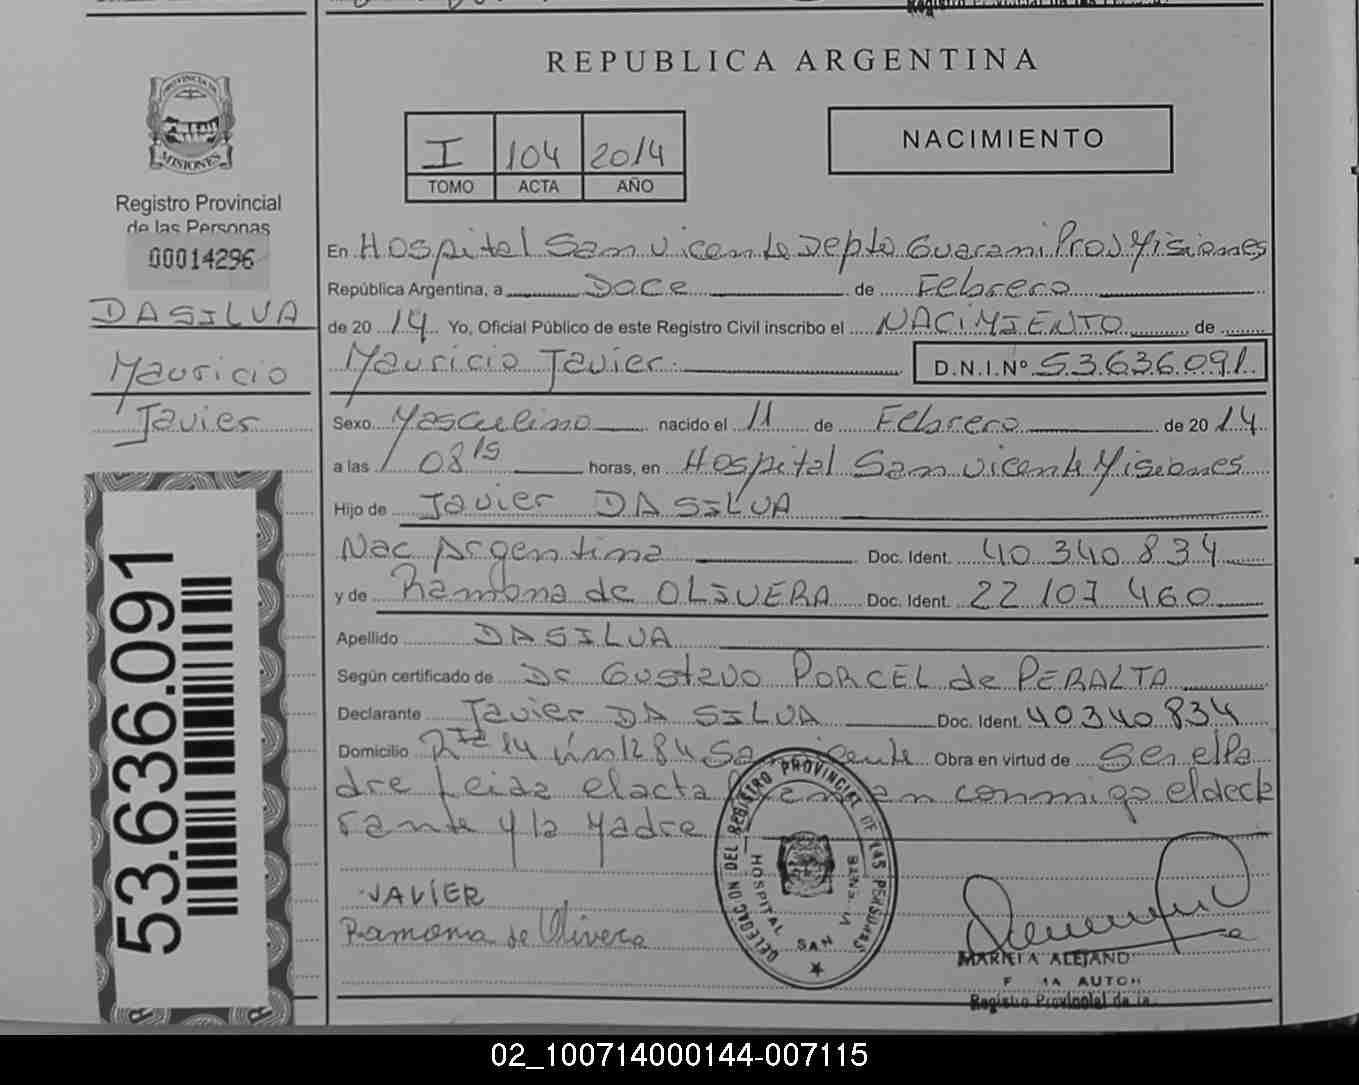 REPUBLICA ARGENTINA
PROVINCIA DE
MISIONES
Registro Provincial
de las Personas
00014296
DASILVA
Mauricio
Javier
53.636.091
I 104 2014
TOMO ACTA AÑO
NACIMIENTO
En Hospital San Vicente Depto Guarani Prov Misiones
República Argentina, a Doce de Febrero
de 20 14 Yo, Oficial Público de este Registro Civil inscribo el NACIMIENTO de
Mauricio Javier. D.N.I.Nº 53.636.091.
Sexo Masculino nacido el 11 de Febrero de 20 14
a las 08 15 horas, en Hospital San Vicente Misiones
Hijo de Javier DA SILVA
Nac Argentina Doc. Ident. 40 340 834
y de Ramona de OLIVERA Doc. Ident. 22 107 460
Apellido DASILVA
Según certificado de Dr Gustavo PORCEL de PERALTA
Declarante Javier DA SILVA Doc. Ident. 40340834
Domicilio Rta 14 km 1284 San Vicente Obra en virtud de ser el Pa
dre Leida el acta conmigo el decla
rante y la Madre
JAVIER
Ramona de Olivera
DELEGACION DEL REGISTRO PROVINCIAL DE LAS PERSONAS
HOSPITAL SAN VICENTE
MARIELA ALEJAND
Registro Provincial de la
02_100714000144-007115